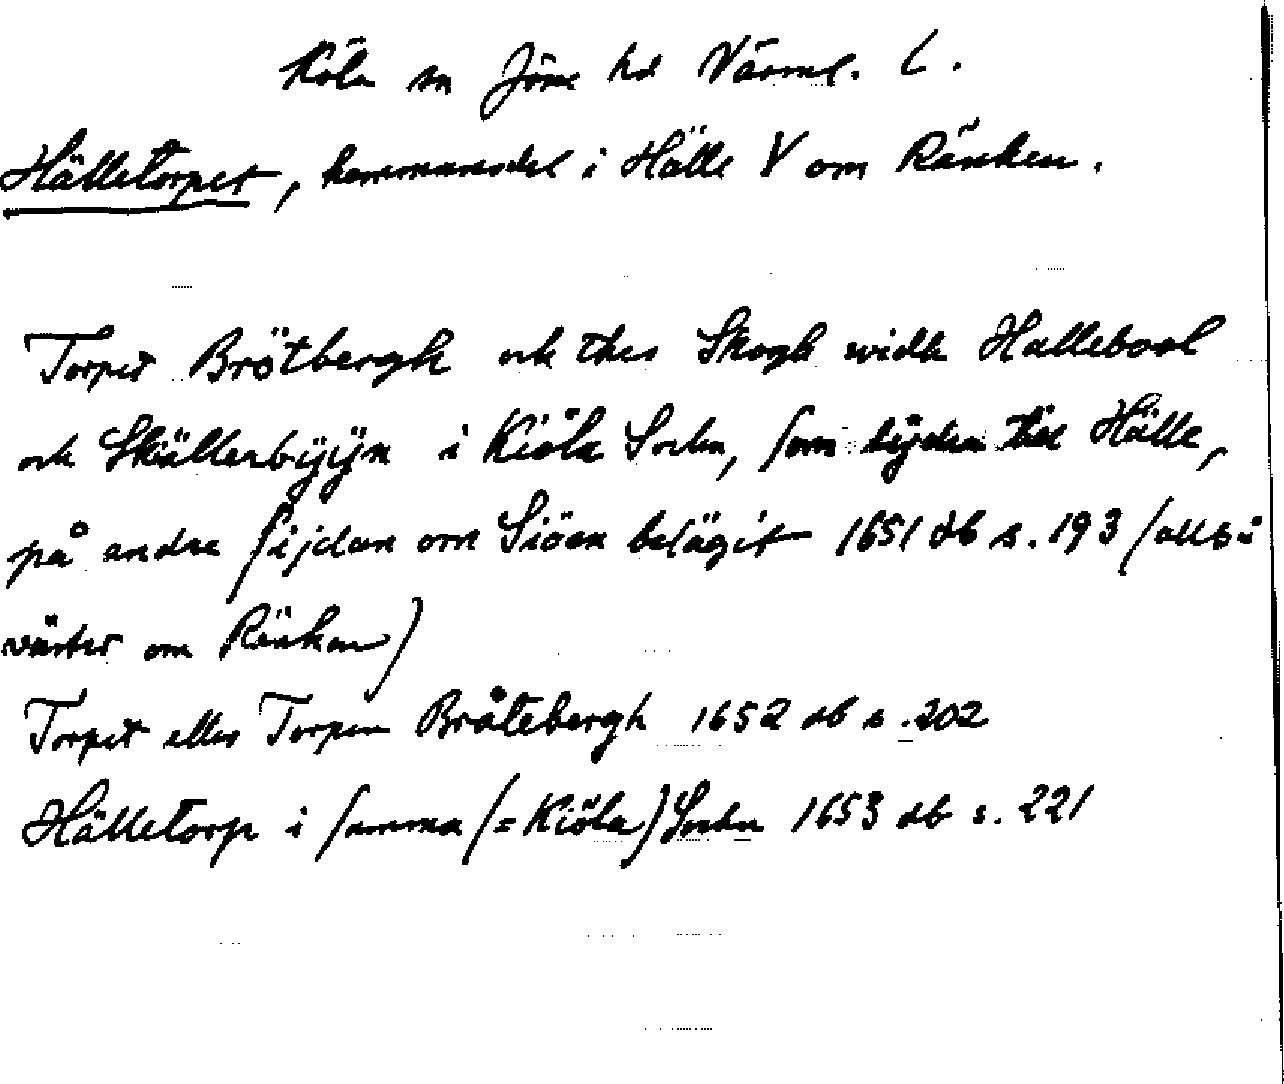 Köla sn Jösse hd Värml. L.
Hälletorpet, hemmansdel i Hälle V om Ränken.
Torpet Brötbergh och thes Skogh widh Hallebool
och Skällarbÿÿn i Kiöla Sochn, som lÿder till Hälle,
på andra sijdan om Siöen belägit 1651 db s. 193 (alltså
väster om Ränken)
Torpet eller Torpen Bråtebergh 1652 db s. 202
Hälletorp i samma (= Kiöla) Sochn 1653 db s. 221